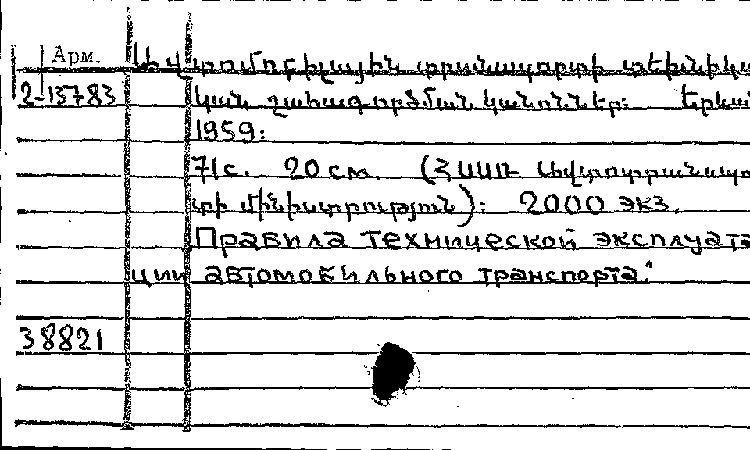 Арм. Ավտոմոբիլային տրանսպորտի տեխնիկա
2-15783 կան շահագործման կանոններ: Երևան
1959:
71с. 20 см. (ՀՍՍՌ Ավտոտրանսպո
տի մինիստրություն): 2000 экз.
Правила технической эксплуата
ции автомобильного транспорта."
38821